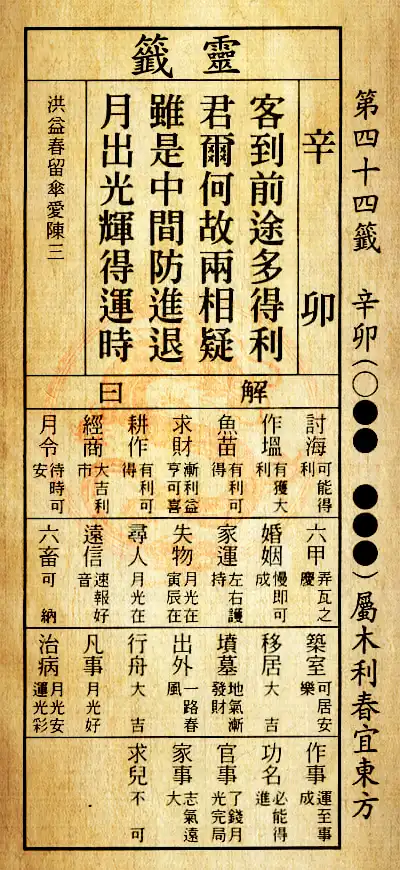 第四十四籤 辛卯(○●● ●●●)屬木利春宜東方
靈籤
辛卯
客到前途多得利
君爾何故兩相疑
雖是中間防進退
月出光輝得運時
洪益春留傘愛陳三
解曰
討海 可能得利
作塭 有獲大利
魚苗 有利可得
求財 漸利益亨可喜
耕作 有利可得
經商 大吉利市
月令 待時可安
六甲 弄瓦之慶
婚姻 慢即可成
家運 左右護持
失物 月光在寅辰在
尋人 月光在
遠信 速報好音
六畜 可納
築室 可居安樂
移居 大吉
墳墓 地氣漸發財
出外 一路春風
行舟 大吉
凡事 月光好
治病 月光安運光彩
作事 運至事成
功名 必能得進
官事 了錢月光完局
家事 志氣遠大
求兒 不可